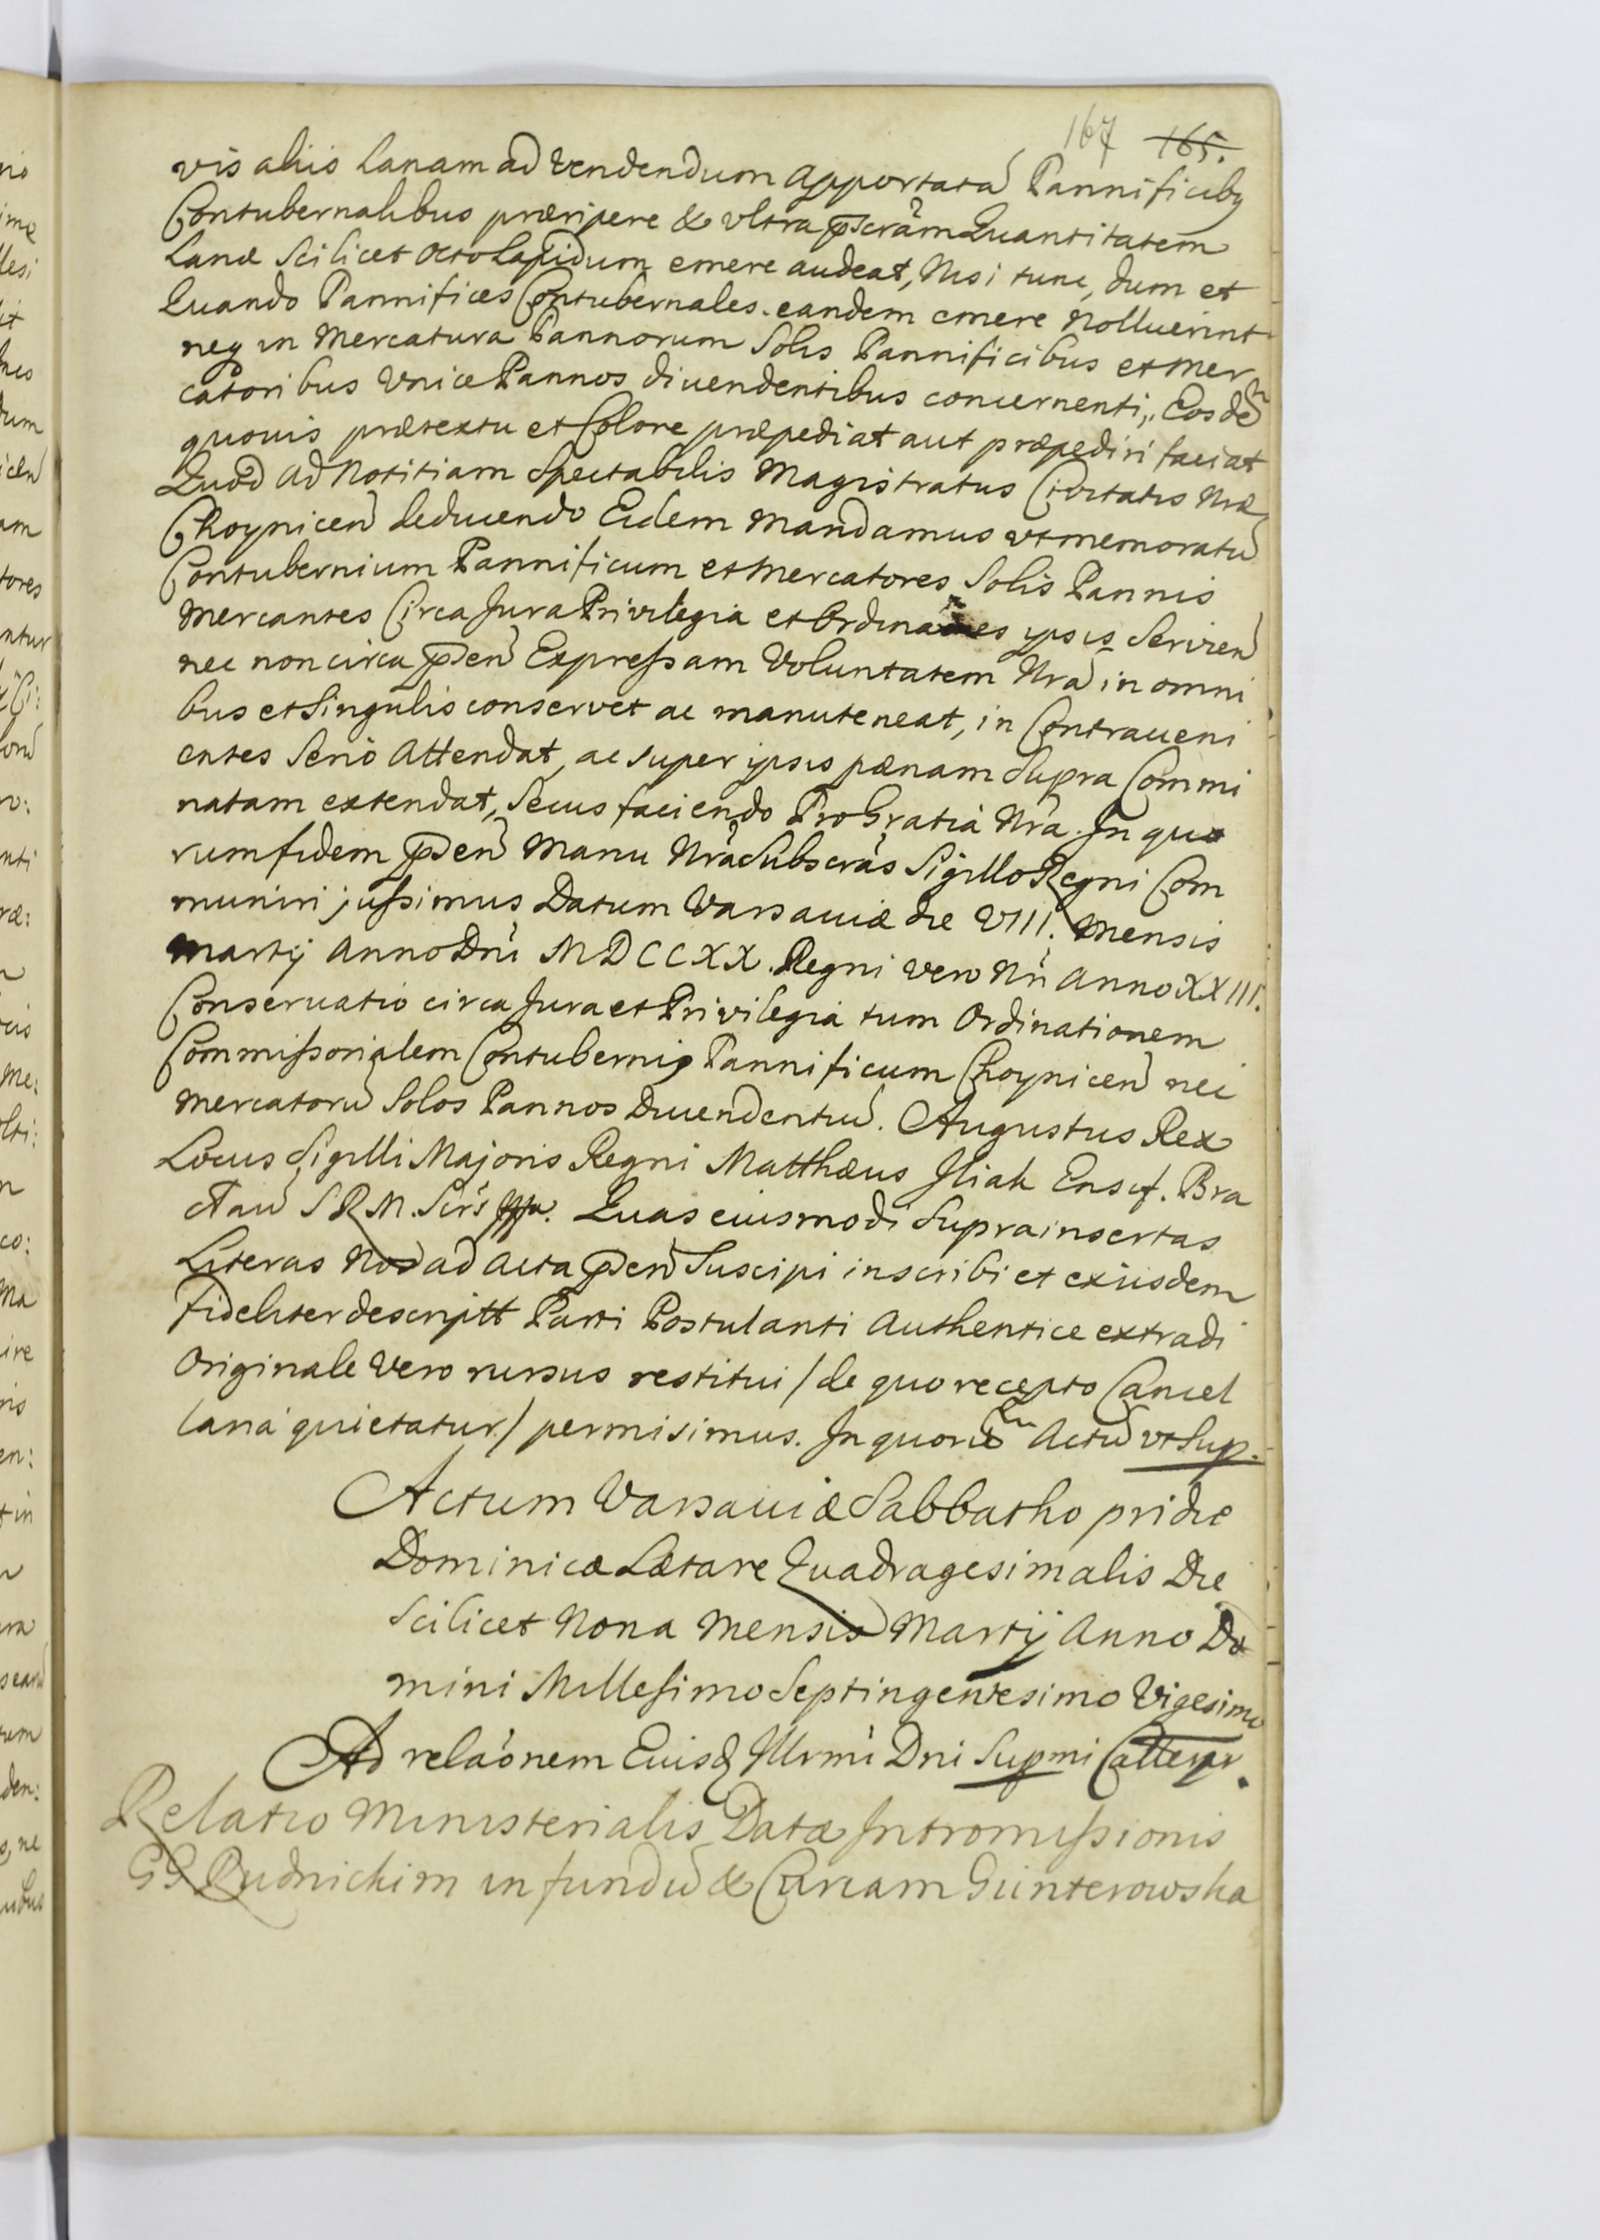 167 165.
vis aliis Lanam ad Vendendum Apportatã Pannificibq
Contubernalibus præripere & vltra pscrãm Quantitatem
Lanæ Scilicet Octo Lapidum emere audeat, Nisi tunc, dum et
Quando Pannifices Contubernales eandem emere Nolluerint
neq in Mercatura Pannorum Solis Pannificibus et Mer
catoribus Vnice Pannos diuendentibus concernenti, Eosdẽ
quouis prætextu et Colore præpediat aut præpediri faciat
Quod ad Notitiam Spectabilis Magistratus Civitatis Nræ
Choynicen deducendo Eidem Mandamus vt memoratũ
Contubernium Pannificum et Mercatores Solis Pannis
Mercantes Circa Jura Privilegia et Ordinaões ipsis Servien
nec non circa pñen Expressam Voluntatem Nrã in omni
bus et Singulis conservet ac manuteneat, in Contraueni
entes Serio Attendat, ac super ipsis pænam Supra Commi
natam extendat, Secus faciendo Pro Gratia Nra. In quo
rum fidem pñen Manu Nra Subscràs Sigillo Regni Com
muniri jussimus Datum Varsauiæ die VIII. Mensis
Martij Anno Dni MDCCXX. Regni Vero Nri Anno XXIII.
Conseruatio circa Jura et Privilegia tum Ordinationem
Commissorialem Contubernio Pannificum Choynicen nec
Mercatorũ Solos Pannos Diuendentiũ. Augustus Rex
Locus Sigilli Majoris Regni Matthæus Iliak Ensif. Bra
clau S R M. Scrs mpp. Quas eiusmodi Supra insertas
Literas Nos ad Acta pñen Suscipi inscribi et exiisdem
fideliter descriptt Parti Postulanti Authentice extradi
Originale Vero rursus restitui / de quo recepto Cancel
laria quietatur / permisimus. In quorũ Actũ vt Sup.
Actum Varsauiæ Sabbatho pridie
Dominicæ Lætare Quadragesimalis Die
Scilicet Nona Mensis Martij Anno Do
mini Millesimo Septingentesimo Vigesimo
Ad relaónem Eiusd Illrmi Dni Supmi Cattery.
Relatio Ministerialis Datæ Intromissionis
GG Rudnickim in fundũ & Curiam Günterowska